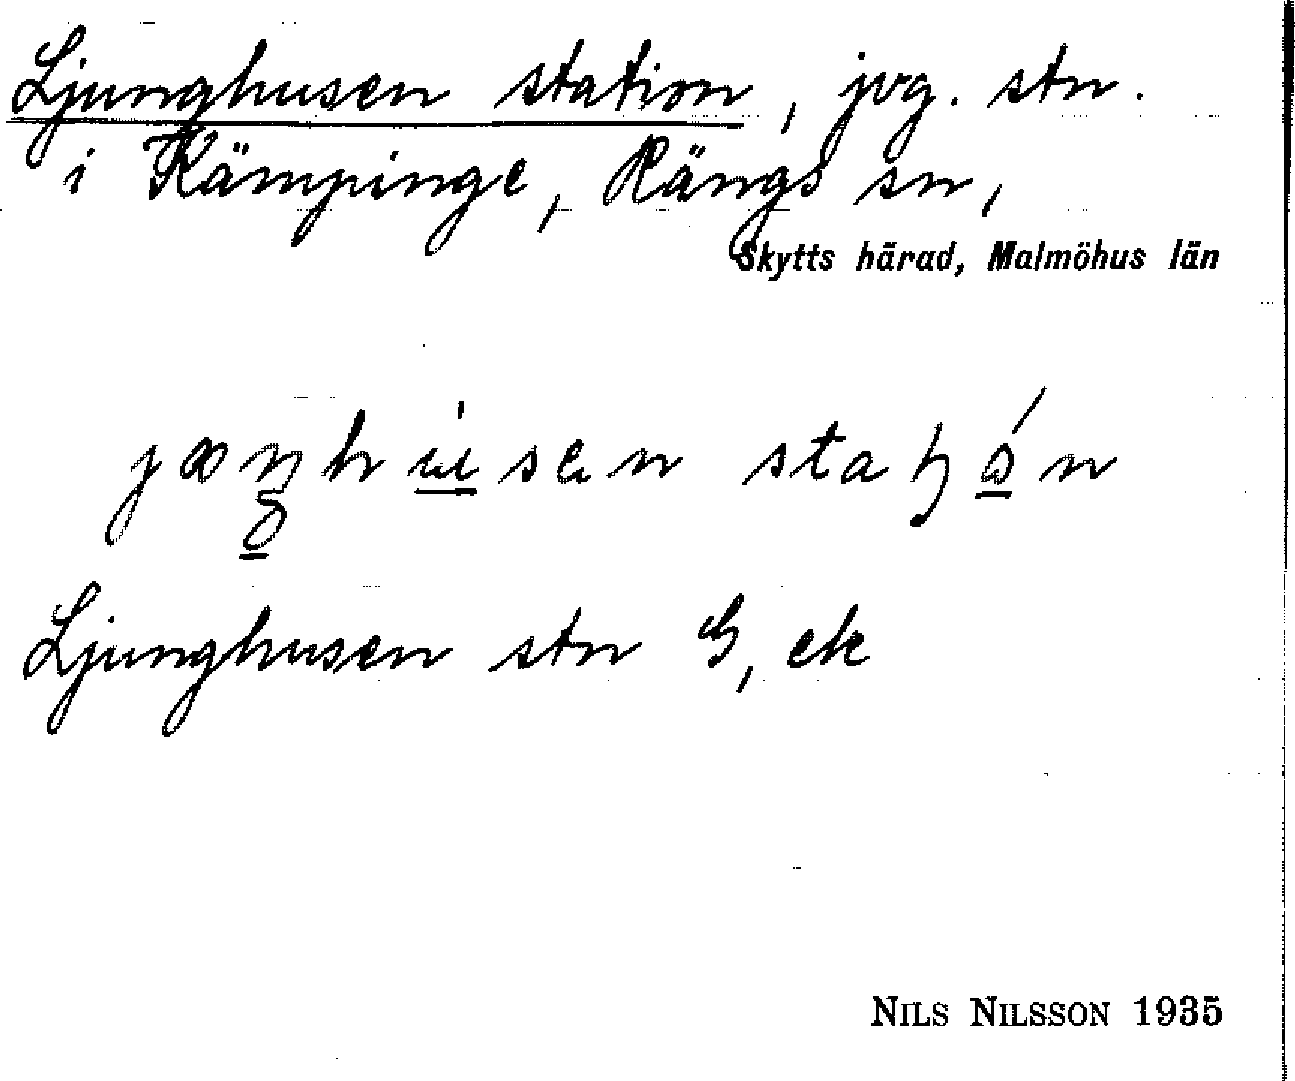 Ljunghusen station, jvg. stn.
i Kämpinge, Rängs sn,
Skytts härad, Malmöhus län
stn
Ljunghusen stn G, ek
NILS NILSSON 1935